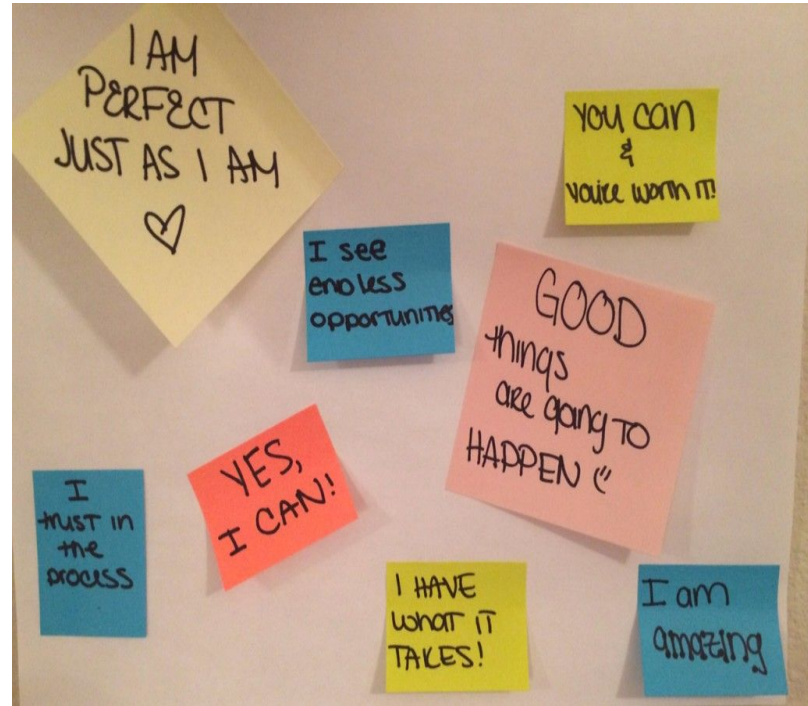 I AM
PERFECT
JUST AS I AM
♡
YOU CAN
&
YOU'RE WORTH IT!
I see
endless
opportunities
GOOD
things
are going TO
HAPPEN (:
YES,
I CAN!
I
trust in
the
process
I HAVE
WHAT IT
TAKES!
I am
amazing